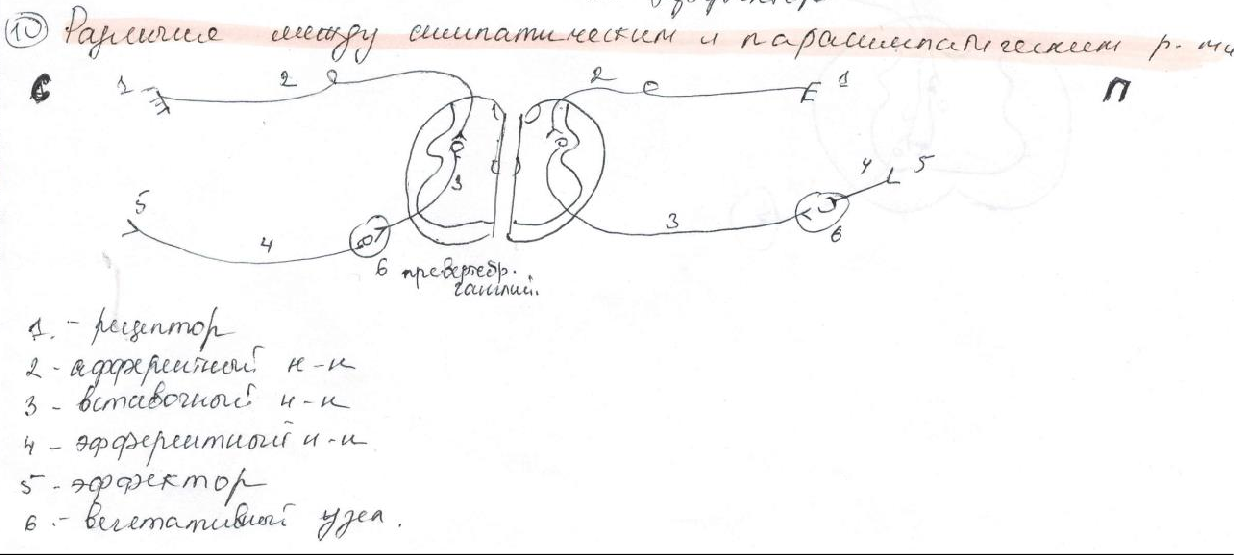 10 Различие между симпатическим и парасимпатическим р.
С 1 2 2 1 П
3
5 4 3 4 5
6 превертебр. 6
ганглий.
1. - рецептор
2 - афферентный н-н
3 - вставочный н-н
4 - эфферентный н-н
5 - эффектор
6 - вегетативный узел.